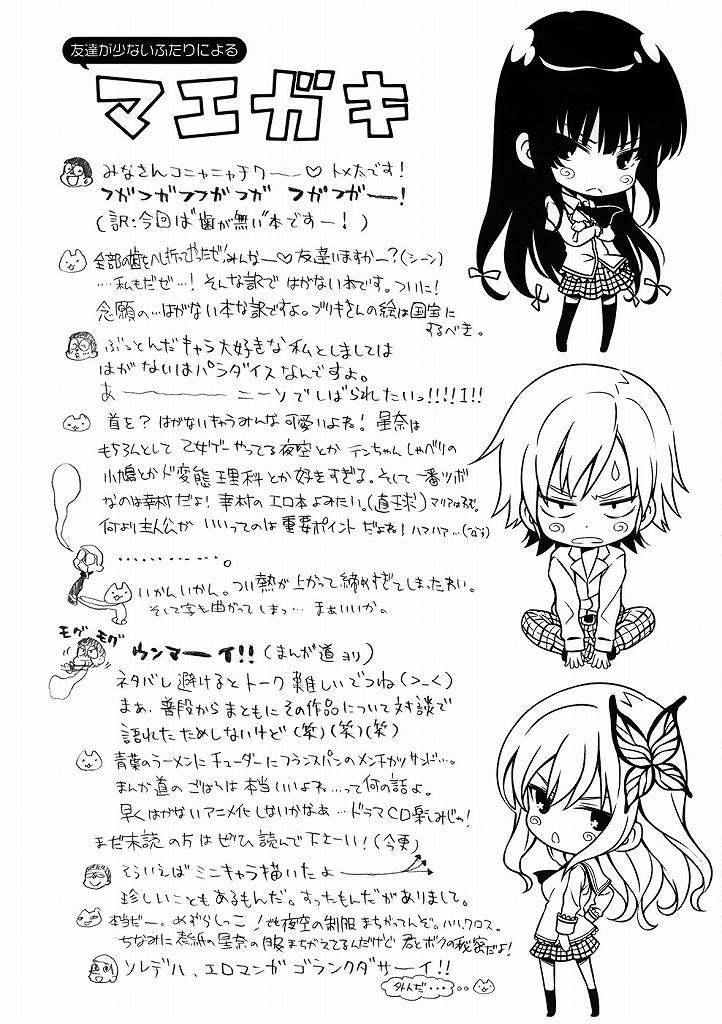 友達が少ないふたりによる
マエガキ
みなさんコニャニャチワ――♡ トメ太です!
フガフガフフガフガ フガフガー!
(訳:今回は"歯が無い"本ですー!)
全部の歯をへし折ってやったぜ!みんなー♡友達いますかー?(シーン)
‥‥私もだぜ…!そんな訳で はがないわです。ついに!
念願の…はがない本な訳ですよ。ブリキさんの絵は国宝に
するべき。
ぶっとんだキャラ大好きな私としましては
はがないはパラダイスなんですよ。
あ―――― ニーソでしばられたいっ!!!!1!!
首を? はがないキャラみんな可愛いよね! 星奈は
もちろんとして 乙女ゲーやってる夜空とか テンちゃんしゃべりの
小鳩とかド変態理科とか好きすぎる。そして一番ツボ
なのは幸村だよ! 幸村のエロ本よみたい。(直球)マリアは
何より主人公が いいってのは 重要ポイント だよね! ハァハァ…
…………。
いかんいかん。つい熱が上がって締めすぎてしまったわい。
そして字も曲がってしまっ… まぁいいか。
モグ モグ
ウンマーイ!! (まんが道ヨリ)
ネタバレ避けるとトーク難しいでつね(>_<)
まあ、普段からまともにその作品について対談で
語れたためしないけど(笑)(笑)(笑)
青葉のラーメンにチューダーにフランスパンのメンチカツサンド…。
まんが道のごはんは本当いいよね…って何の話よ。
早くはがないアニメ化しないかなぁ…ドラマCD楽しみじゃ!
まだ未読の方はぜひ読んで下さーい!(今更)
そういえばミニキャラ描いたよ――
珍しいこともあるもんだ。すったもんだがありまして。
本当だー。めずらしっこ!でも夜空の制服まちがってんぞ。ハハ、クロス。
ちなみに表紙の星奈の服まちがえてるんだけど 君とボクの秘密だよ!
ソレデハ、エロマンガ ゴランクダサーイ!!
外人だ・・・